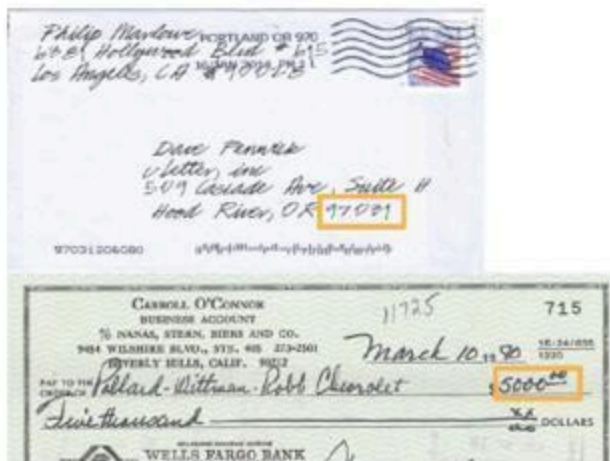 Philip Marlowe PORTLAND OR 970
Hollywood Blvd # 615
Los Angeles, CA
Dave Fennick
uLetter, inc
509 Cascade Ave, Suite H
Hood River, OR 97031
97031206080
CARROLL O'CONNOR
BUSINESS ACCOUNT
% NANAS, STERN, BIERS AND CO.
9454 WILSHIRE BLVD., STE. 405 273-2501
BEVERLY HILLS, CALIF. 90212
11725
715
March 10, 1990
PAY TO THE
ORDER OF Pollard-Wittman-Robb Chevrolet $5000.00
Five thousand xx DOLLARS
WELLS FARGO BANK